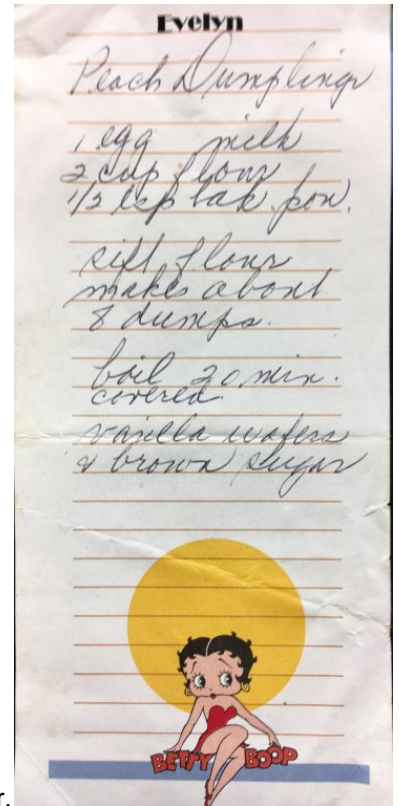 Evelyn
Peach Dumplings
1 egg milk
2 cup flour
1/2 tsp bak. pow.
sift flour
makes about
8 dumps.
boil 20 min.
covered.
vanilla wafers
& brown sugar
BETTY BOOP
r.